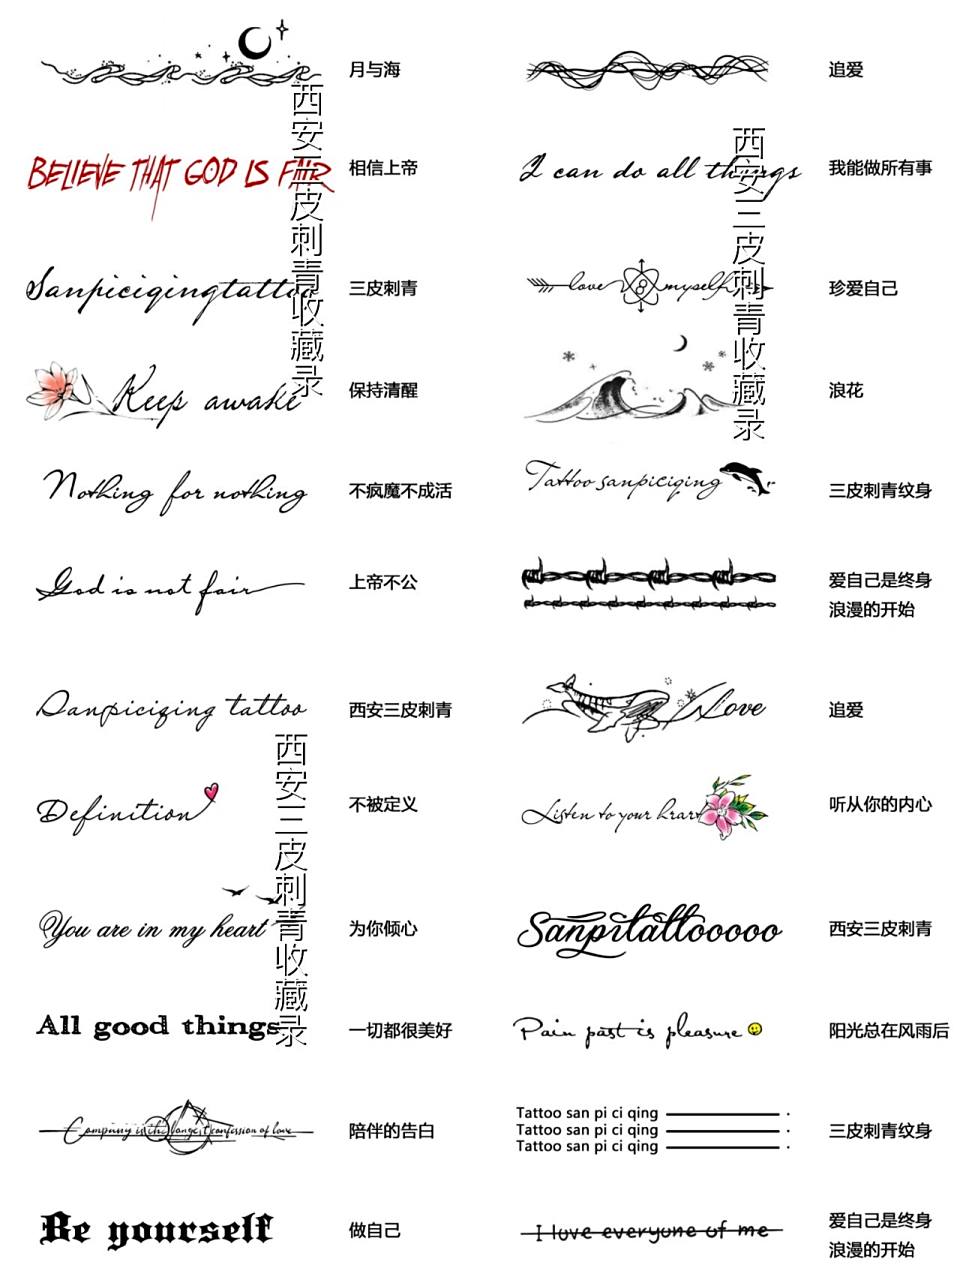 月与海
追爱
BELIEVE THAT GOD IS FAIR
相信上帝
I can do all things
我能做所有事
Sanpiciqingtattoo
三皮刺青
love myself
珍爱自己
Keep awake
保持清醒
浪花
Nothing for nothing
不疯魔不成活
Tattoo sanpiciqing
三皮刺青纹身
God is not fair
上帝不公
爱自己是终身
浪漫的开始
Danpiciqing tattoo
西安三皮刺青
Love
追爱
Definition
不被定义
Listen to your heart
听从你的内心
You are in my heart
为你倾心
Sanpitattooooo
西安三皮刺青
All good things
一切都很美好
Pain past is pleasure
阳光总在风雨后
Company is the longest confession of love
陪伴的告白
Tattoo san pi ci qing
Tattoo san pi ci qing
Tattoo san pi ci qing
三皮刺青纹身
Be yourself
做自己
I love everyone of me
爱自己是终身
浪漫的开始
西安三皮刺青收藏录
西安三皮刺青收藏录
西安三皮刺青收藏录